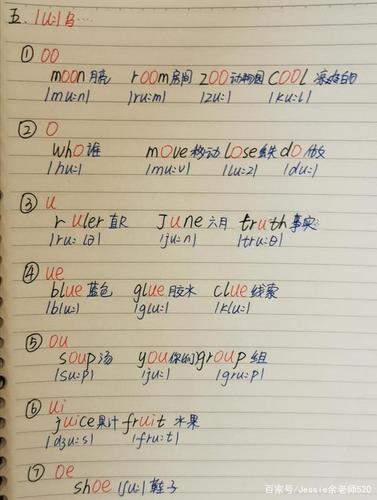 五. |u:| 乌..
① oo
moon 月亮 room 房间 zoo 动物园 cool 凉爽的
|mu:n| |ru:m| |zu:| |ku:l|
② o
who 谁 move 移动 lose 丢失 do 做
|hu:| |mu:v| |lu:z| |du:|
③ u
ruler 直尺 June 六月 truth 事实
|ru:lə| |ju:n| |tru:θ|
④ ue
blue 蓝色 glue 胶水 clue 线索
|blu:| |glu:| |klu:|
⑤ ou
soup 汤 you 你(们) group 组
|su:p| |ju:| |gru:p|
⑥ ui
juice 果汁 fruit 水果
|dʒu:s| |fru:t|
⑦ oe
shoe |ʃu:| 鞋子
百家号/Jessie余老师520